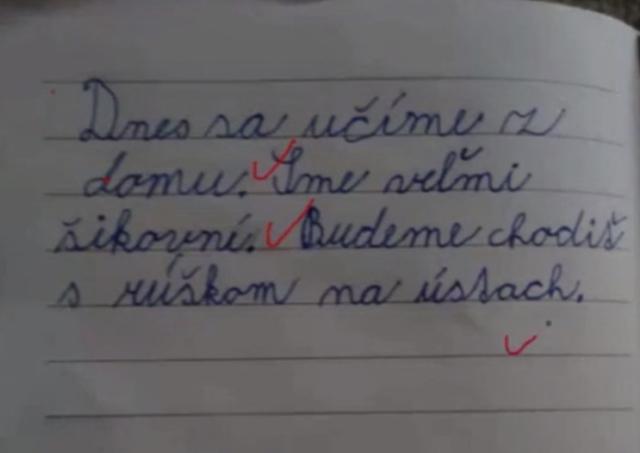 Dnes sa učíme z
domu. Sme veľmi
šikovní. Budeme chodiť
s rúškom na ústach.